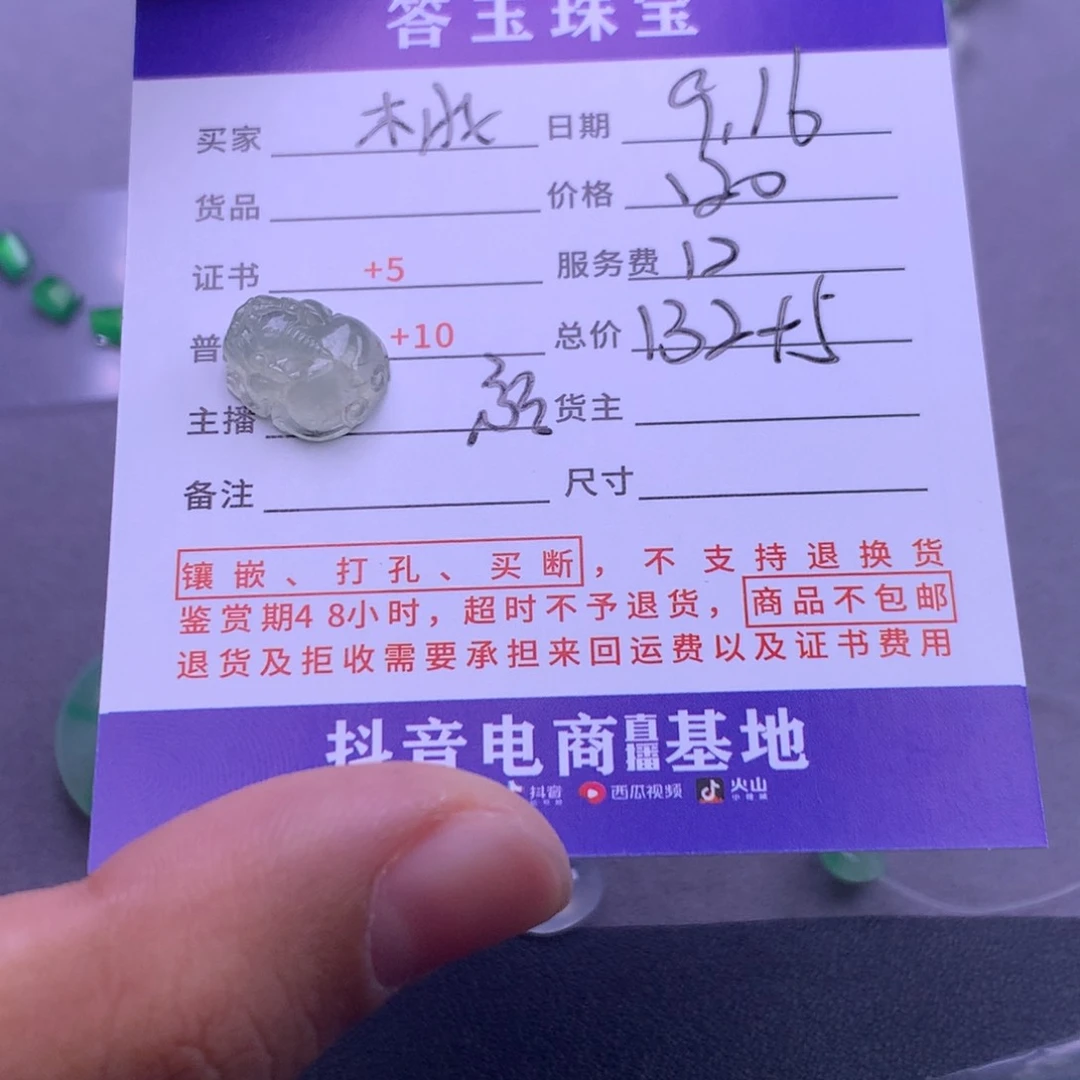 答玉珠宝
买家 木 日期 9.16
货品 价格 120
证书 +5 服务费 12
普 +10 总价 132+5
主播 货主
备注 尺寸
镶嵌、打孔、买断，不支持退换货
鉴赏期48小时，超时不予退货，商品不包邮
退货及拒收需要承担来回运费以及证书费用
抖音电商直播基地
抖音 西瓜视频 火山